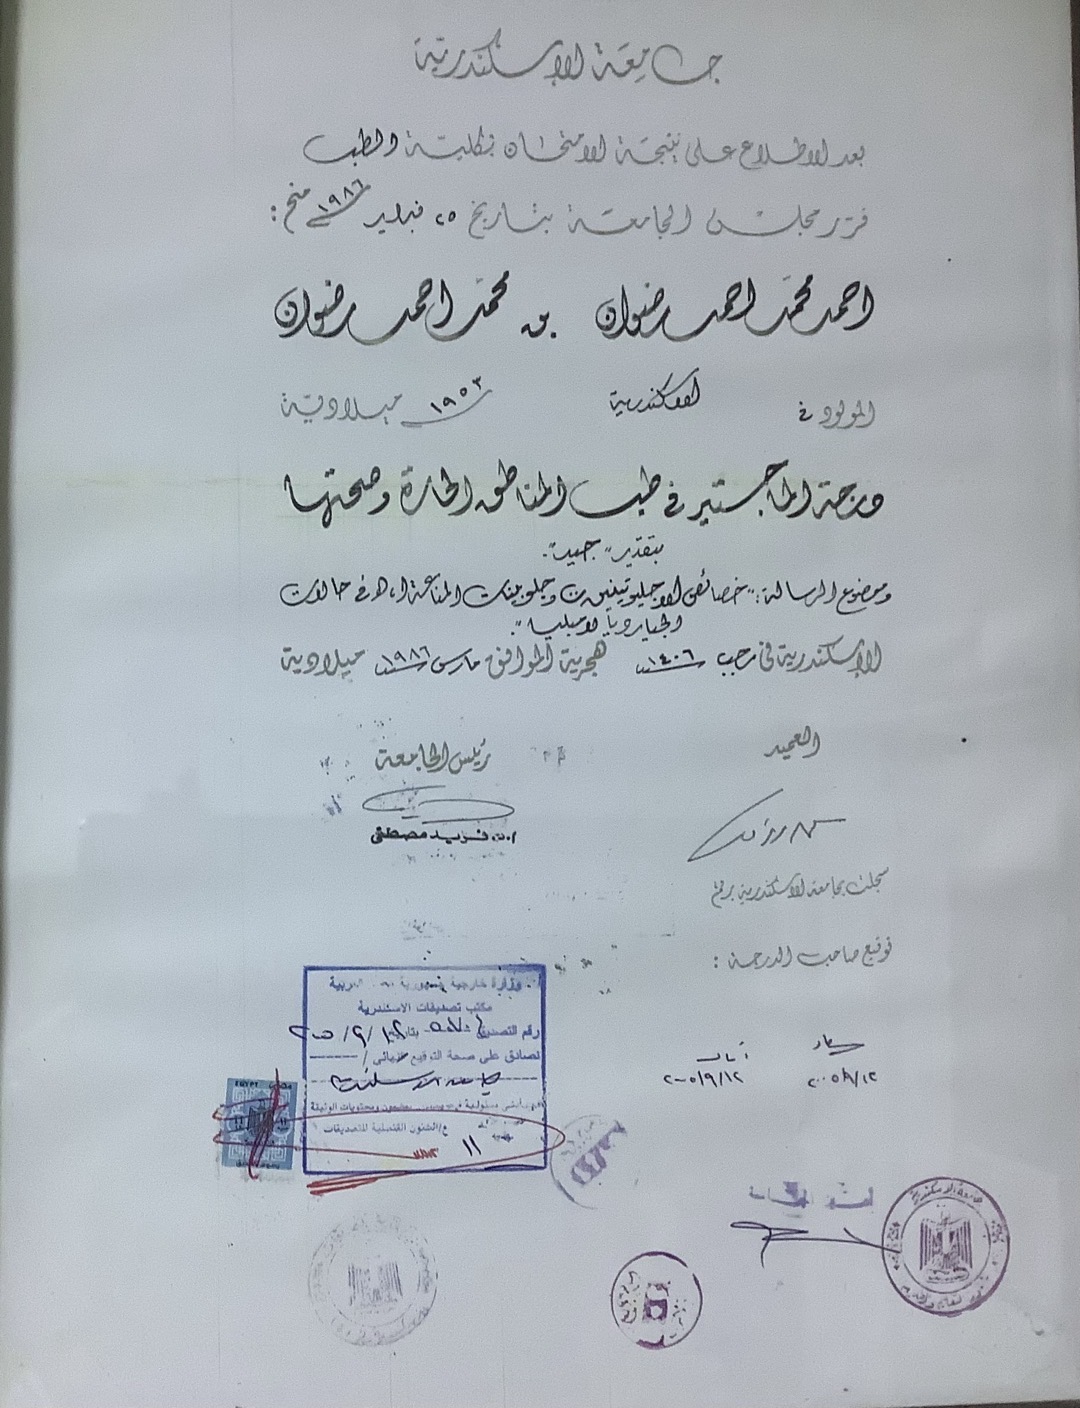 جامعة الإسكندرية
بعد الاطلاع على نتيجة الامتحان بكلية الطب
قرر مجلس الجامعة بتاريخ ٢٥ فبراير ١٩٨٦ منح :
احمد محمد احمد رضوان بن محمد احمد رضوان
المولود في الاسكندرية ١٩٥٣ ميلادية
درجة الماجستير في طب المناطق الحارة وصحتها
بتقدير "جيد".
وموضوع الرسالة : "خصائص وجلوبينات المناعة في حالات
الجيارديا لامبليا".
الإسكندرية في رجب سنة ١٤٠٦ هجرية الموافق مارس سنة ١٩٨٦ ميلادية
العميد رئيس الجامعة
ا.د. فريد مصطفى
سجلت بجامعة الاسكندرية برقم
توقيع صاحب الدرجة :
وزارة خارجية جمهورية العربية
مكتب تصديقات الاسكندرية
رقم التصديق بتاريخ ٢٠٠٥/٩/
نصادق على صحة التوقيع /
جامعة الاسكندرية
ومحتويات الوثيقة
ع/الشئون القنصلية للتصديقات
١١
EGYPT
٢٠٠٥/٩/١٢ ٢٠٠٥/٩/١٢
جامعة الاسكندرية